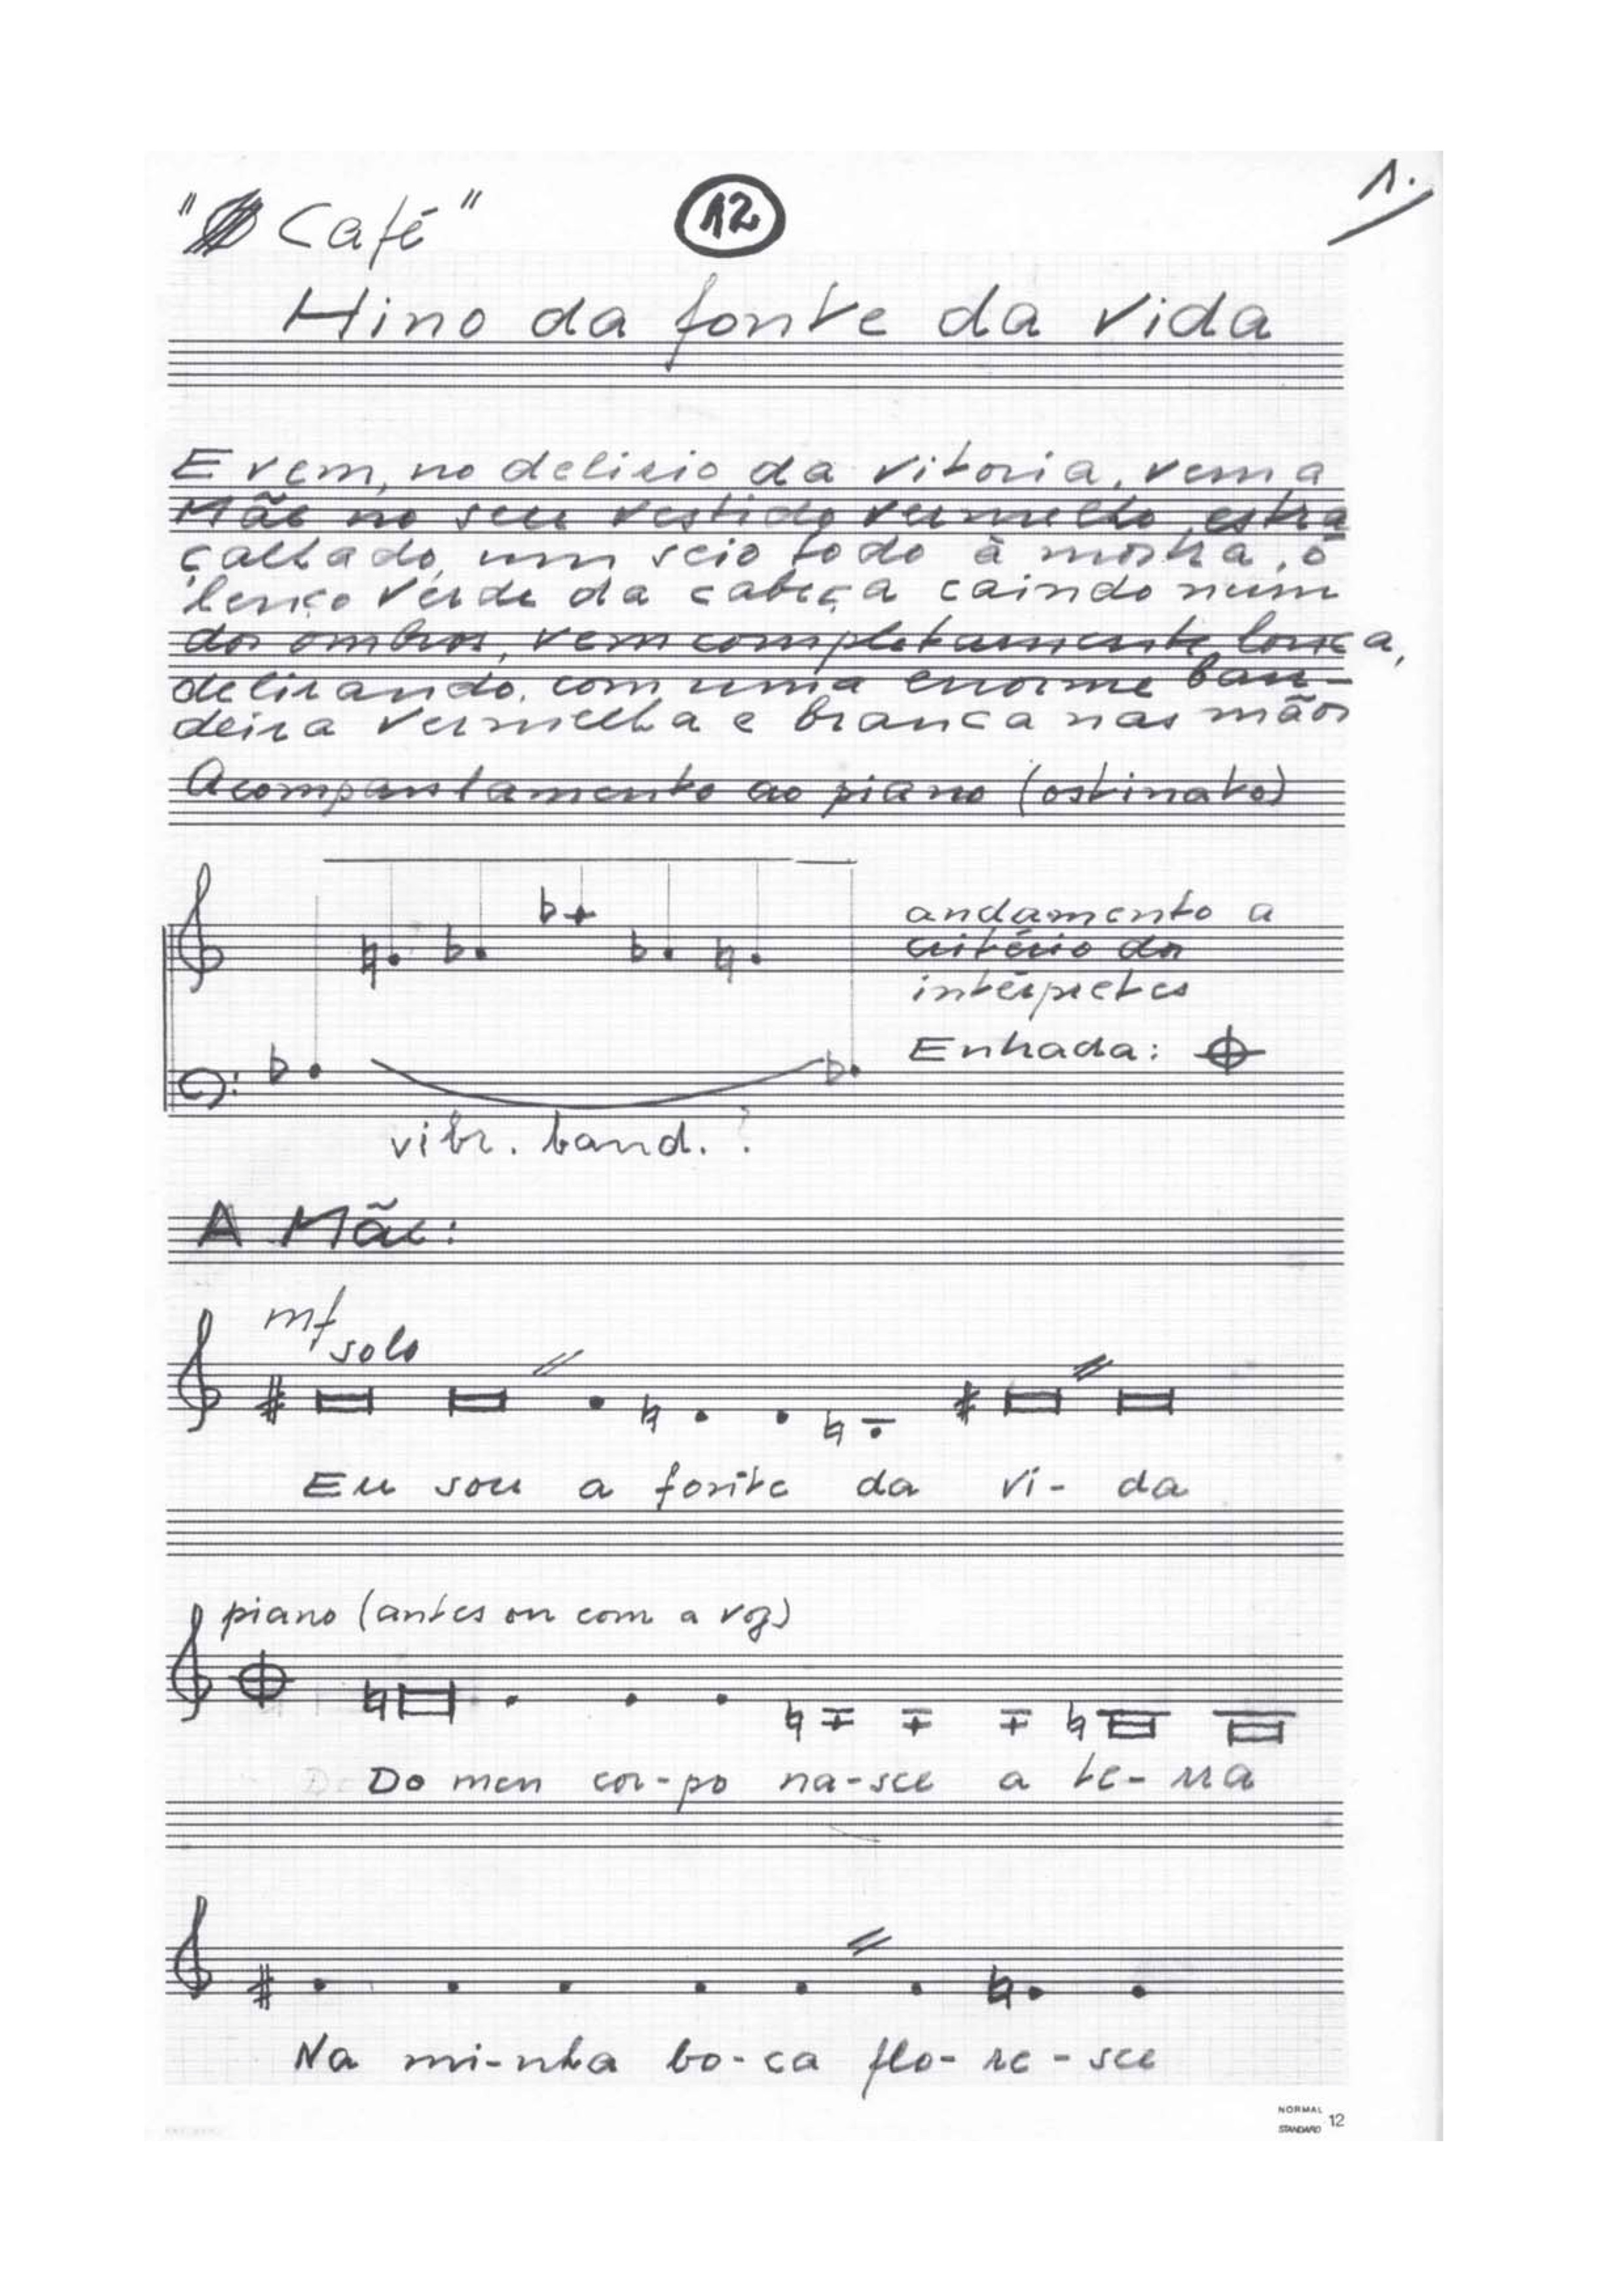 " Café"
12
1.
Hino da fonte da vida
E vem, no delirio da vitoria, vem a
Mãe no seu vestido vermelho, estra
çalhado, um seio todo à mostra, o
lenço verde da cabeça caindo num
dos ombros, vem completamente louca,
delirando, com uma enorme ban-
deira vermelha e branca nas mãos
Acompanhamento ao piano (ostinato)
andamento a
critério dos
intérpretes
Entrada:
vibr. band. ?
A Mãe:
mf
solo
Eu sou a fonte da vi- da
piano (antes ou com a voz)
Do meu cor-po na-sce a te- rra
Na mi-nha bo-ca flo- re - sce
NORMAL
STANDARD 12